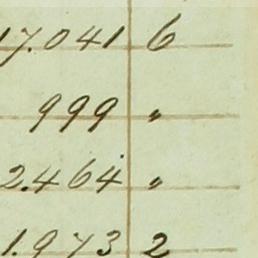 17.041 6
999 "
2.464 "
1.973 2